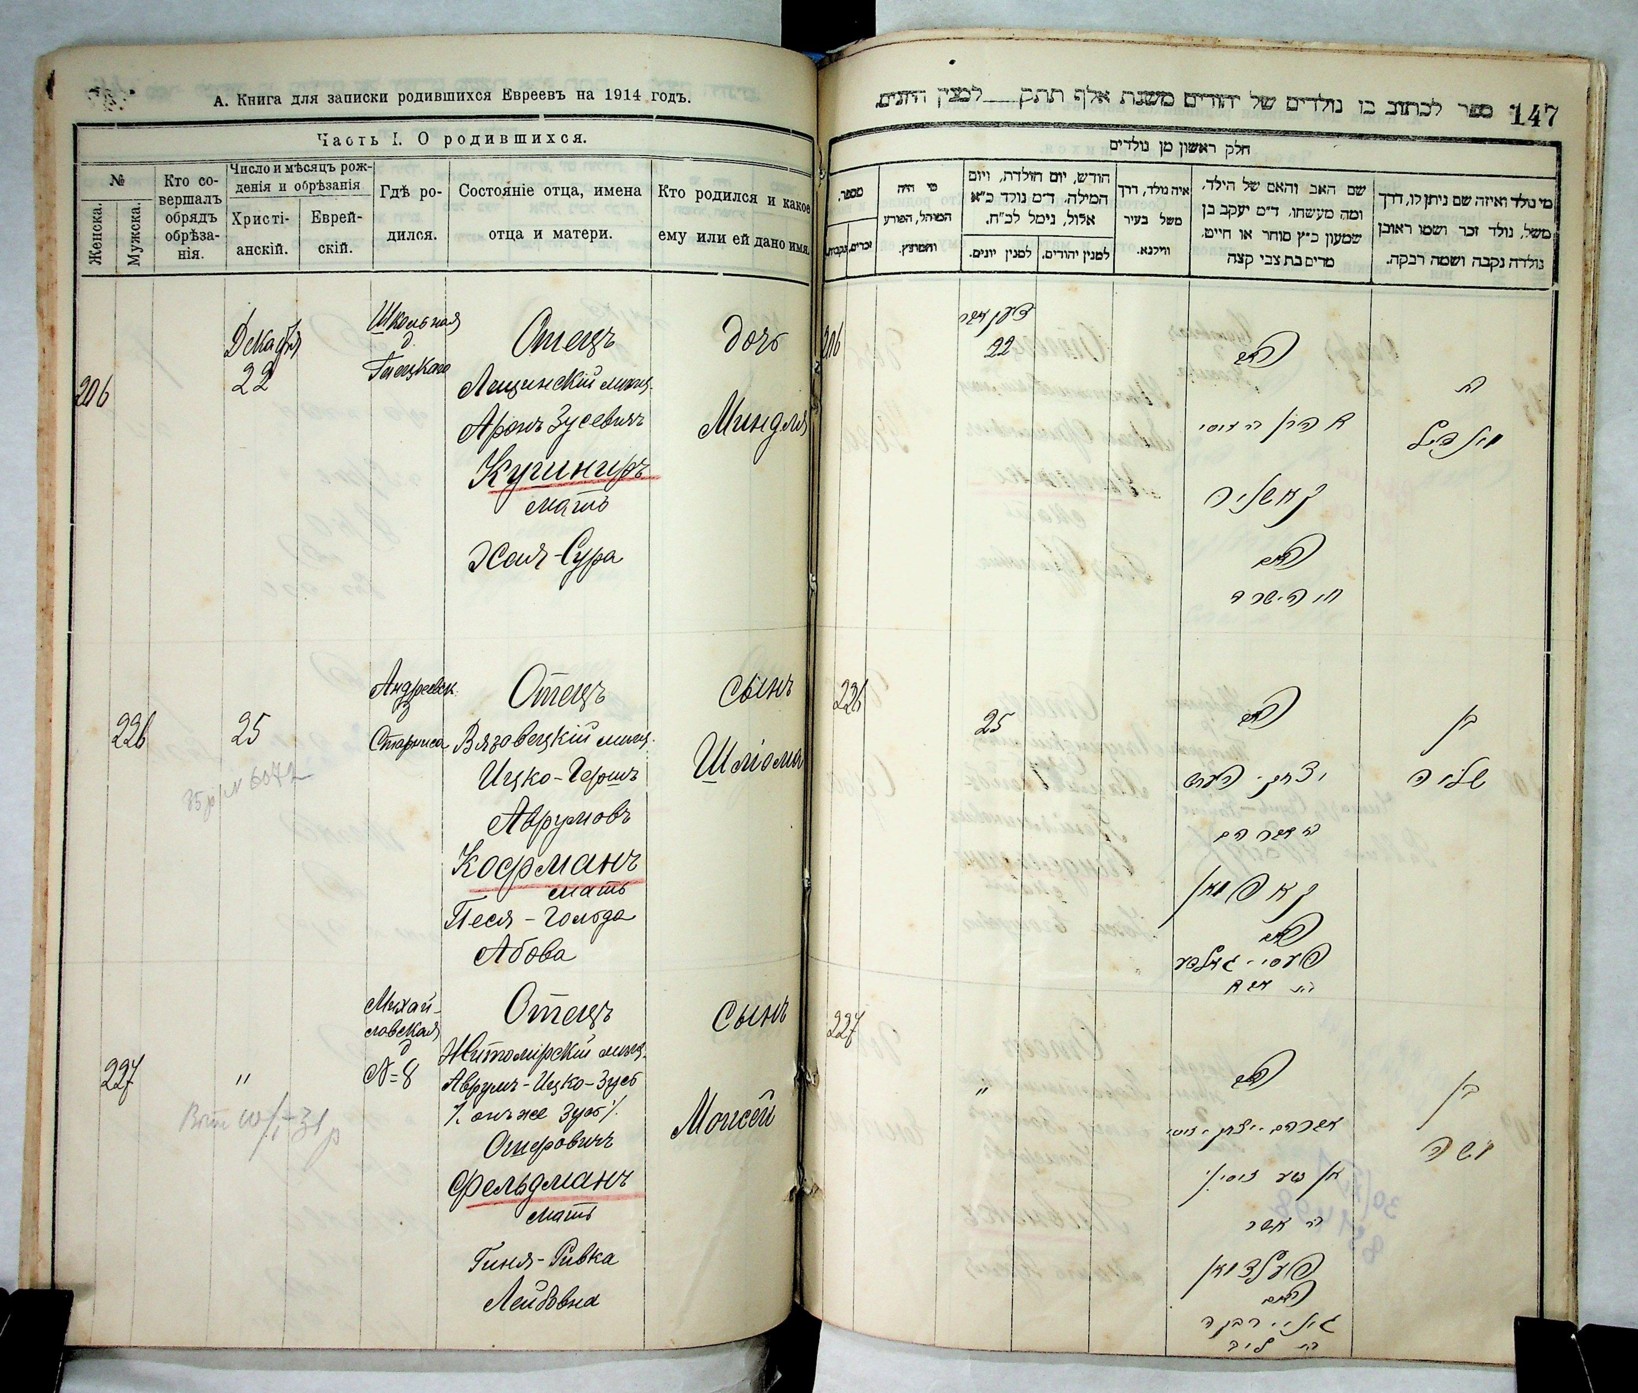 А. Книга для записки родившихся Евреевъ на 1914 годъ.
Часть I. О родившихся.
№
Женска.
Мужска.
Кто со-
вершалъ
обрядъ
обрѣза-
нія.
Число и мѣсяцъ рож-
денія и обрѣзанія
Христі-
анскій.
Еврей-
скій.
Гдѣ ро-
дился.
Состояніе отца, имена
отца и матери.
Кто родился и какое
ему или ей дано имя.
206
Декабря
22
Школьная
д.
Отецъ
Лещинскій мѣщ.
Аронъ Зусевичъ
Кушниръ
мать
Хая-Сура
дочь
Миндля
226
25
Андреевск.
Отецъ
Вязовецкій мѣщ.
Ицко-Гершъ
Аврумовъ
Кофманъ
мать
Песя-Гольда
Абова
сынъ
Шліома
227
"
Михай-
ловская
д
№=8
Отецъ
Житомірскій мѣщ.
Аврумъ-Ицко-Зусь
/. онъ же Зусь ./
Ошеровичъ
Фельдманъ
мать
Гиня-Ривка
Лейбовна
сынъ
Моисей
147
ספר לכתוב בו נולדים של יהודים משנת אלף תתק___למנין היונים.
חלק ראשון מן נולדים
מי נולד ואיזה שם ניתן לו, דרך
משל, נולד זכר ושמו ראובן
נולדה נקבה ושמה רבקה.
שם האב והאם של הילד,
ומה מעשהו. ד״מ יעקב בן
שמעון כ״ץ סוחר או חייט,
מרים בת צבי קצה
איה נולד, דרך
משל בעיר
ווילנא.
הודש, יום הולדת, ויום
המילה. ד״מ נולד כ״א
אלול, נימל לכ״ח.
למנין יהודים.
למנין יונים.
מי היה
המוהל, הפורע
והמוצץ.
מספר.
זכרים.
נקבות.
206
22
האב
אהרן זוסי
קושניר
האם
חי׳ שרה
בת
מינדיל
226
25
האב
יצחק הערש
אברהם
קאפמאן
האם
פעסי גאלדע
בן
שלמה
227
"
האב
אברהם יצחק זוסי
אשר
פעלדמאן
האם
גיני רבקה
בת ליב
בן
משה